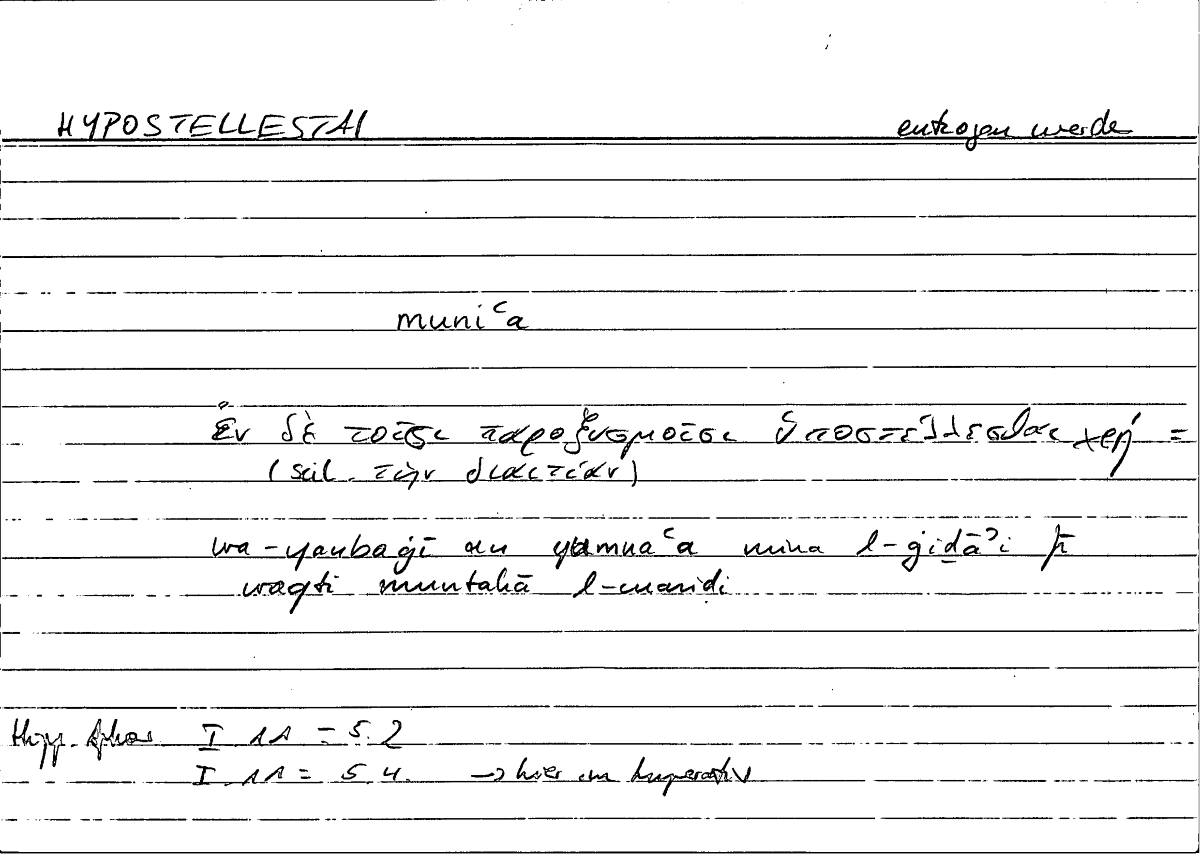 HYPOSTELLESTAI entzogen werde
muniʿa
Ἐν δὲ τοῖσι παροξυσμοῖσι ὑποστέλλεσθαι χρή =
(scil. τὴν διαιτίαν)
wa-yanbaġī an yumnaʿa mina l-ġiḏāʾi fī
waqti muntahā l-maraḍi
Hipp. Aphor. I 11 = 5.2
I 11 = 5 4. → hier im Imperativ